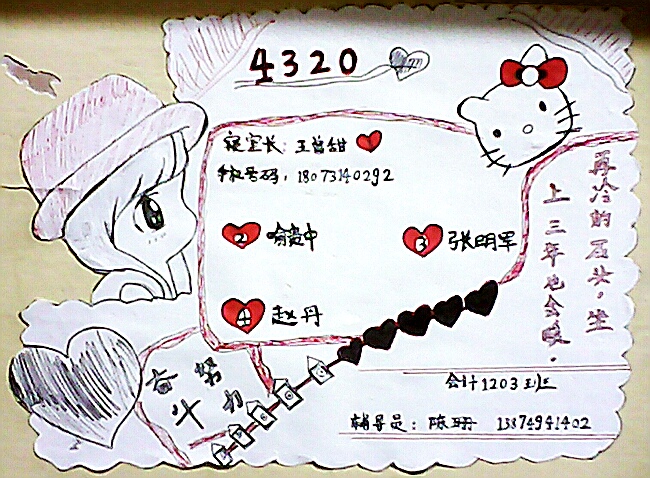 4320
寝室长:王曾甜
手机号码:18073140292
2 喻贵中
3 张明军
4 赵丹
再冷的石头,坐
上三年也会暖.
努力
奋斗
会计1203班
辅导员:陈珊 13874941402